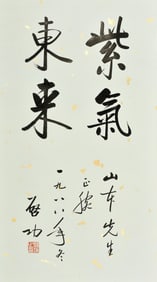 紫氣
東来
山本先生
正
一九八八年冬
啓功